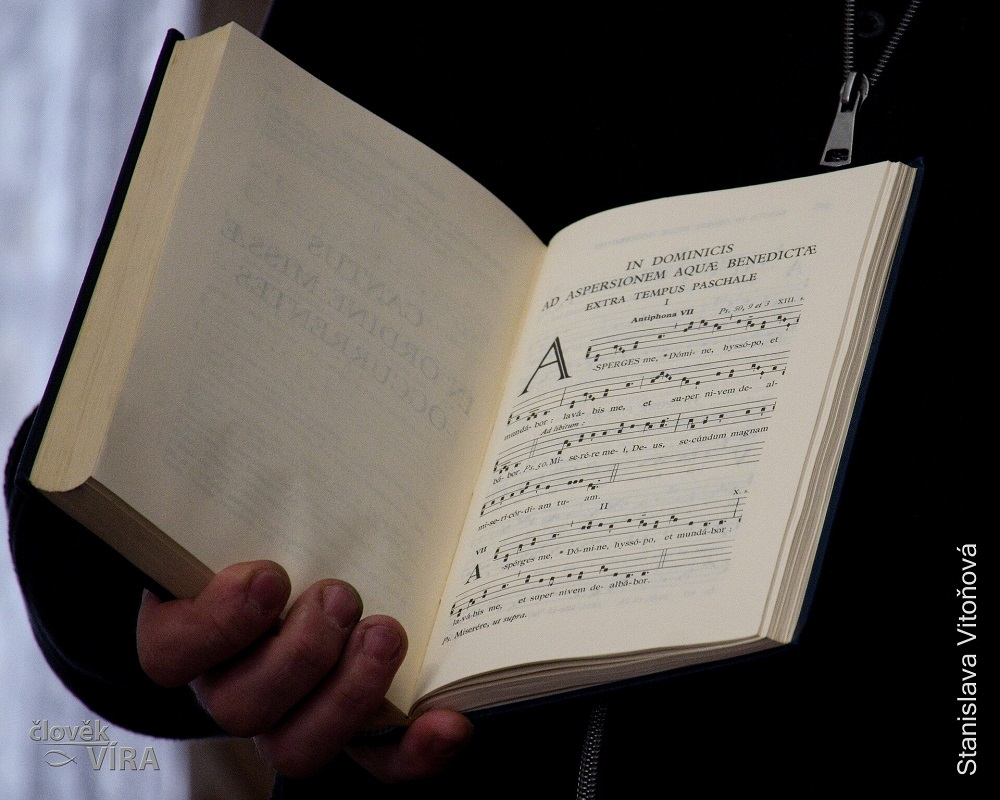 IN DOMINICIS
AD ASPERSIONEM AQUÆ BENEDICTÆ
EXTRA TEMPUS PASCHALE
I
Antiphona VII Ps. 50, 9 et 3 XIII. s.
A
-SPERGES me, * Dómi- ne, hyssó-po, et
mundá- bor : lavá- bis me, et su-per ni-vem de- al-
Ad libitum :
bá- bor. Ps. 50. Mi- se-ré-re me- i, De- us, se-cúndum magnam
mi-se-ri-cór-di- am tu- am.
II
X. s.
VII
A
-spérges me, * Dó-mi-ne, hyssó-po, et mundá-bor :
la-vá-bis me, et super nivem de- albá-bor.
Ps. Miserére, ut supra.
člověk
VÍRA
Stanislava Vitoňová